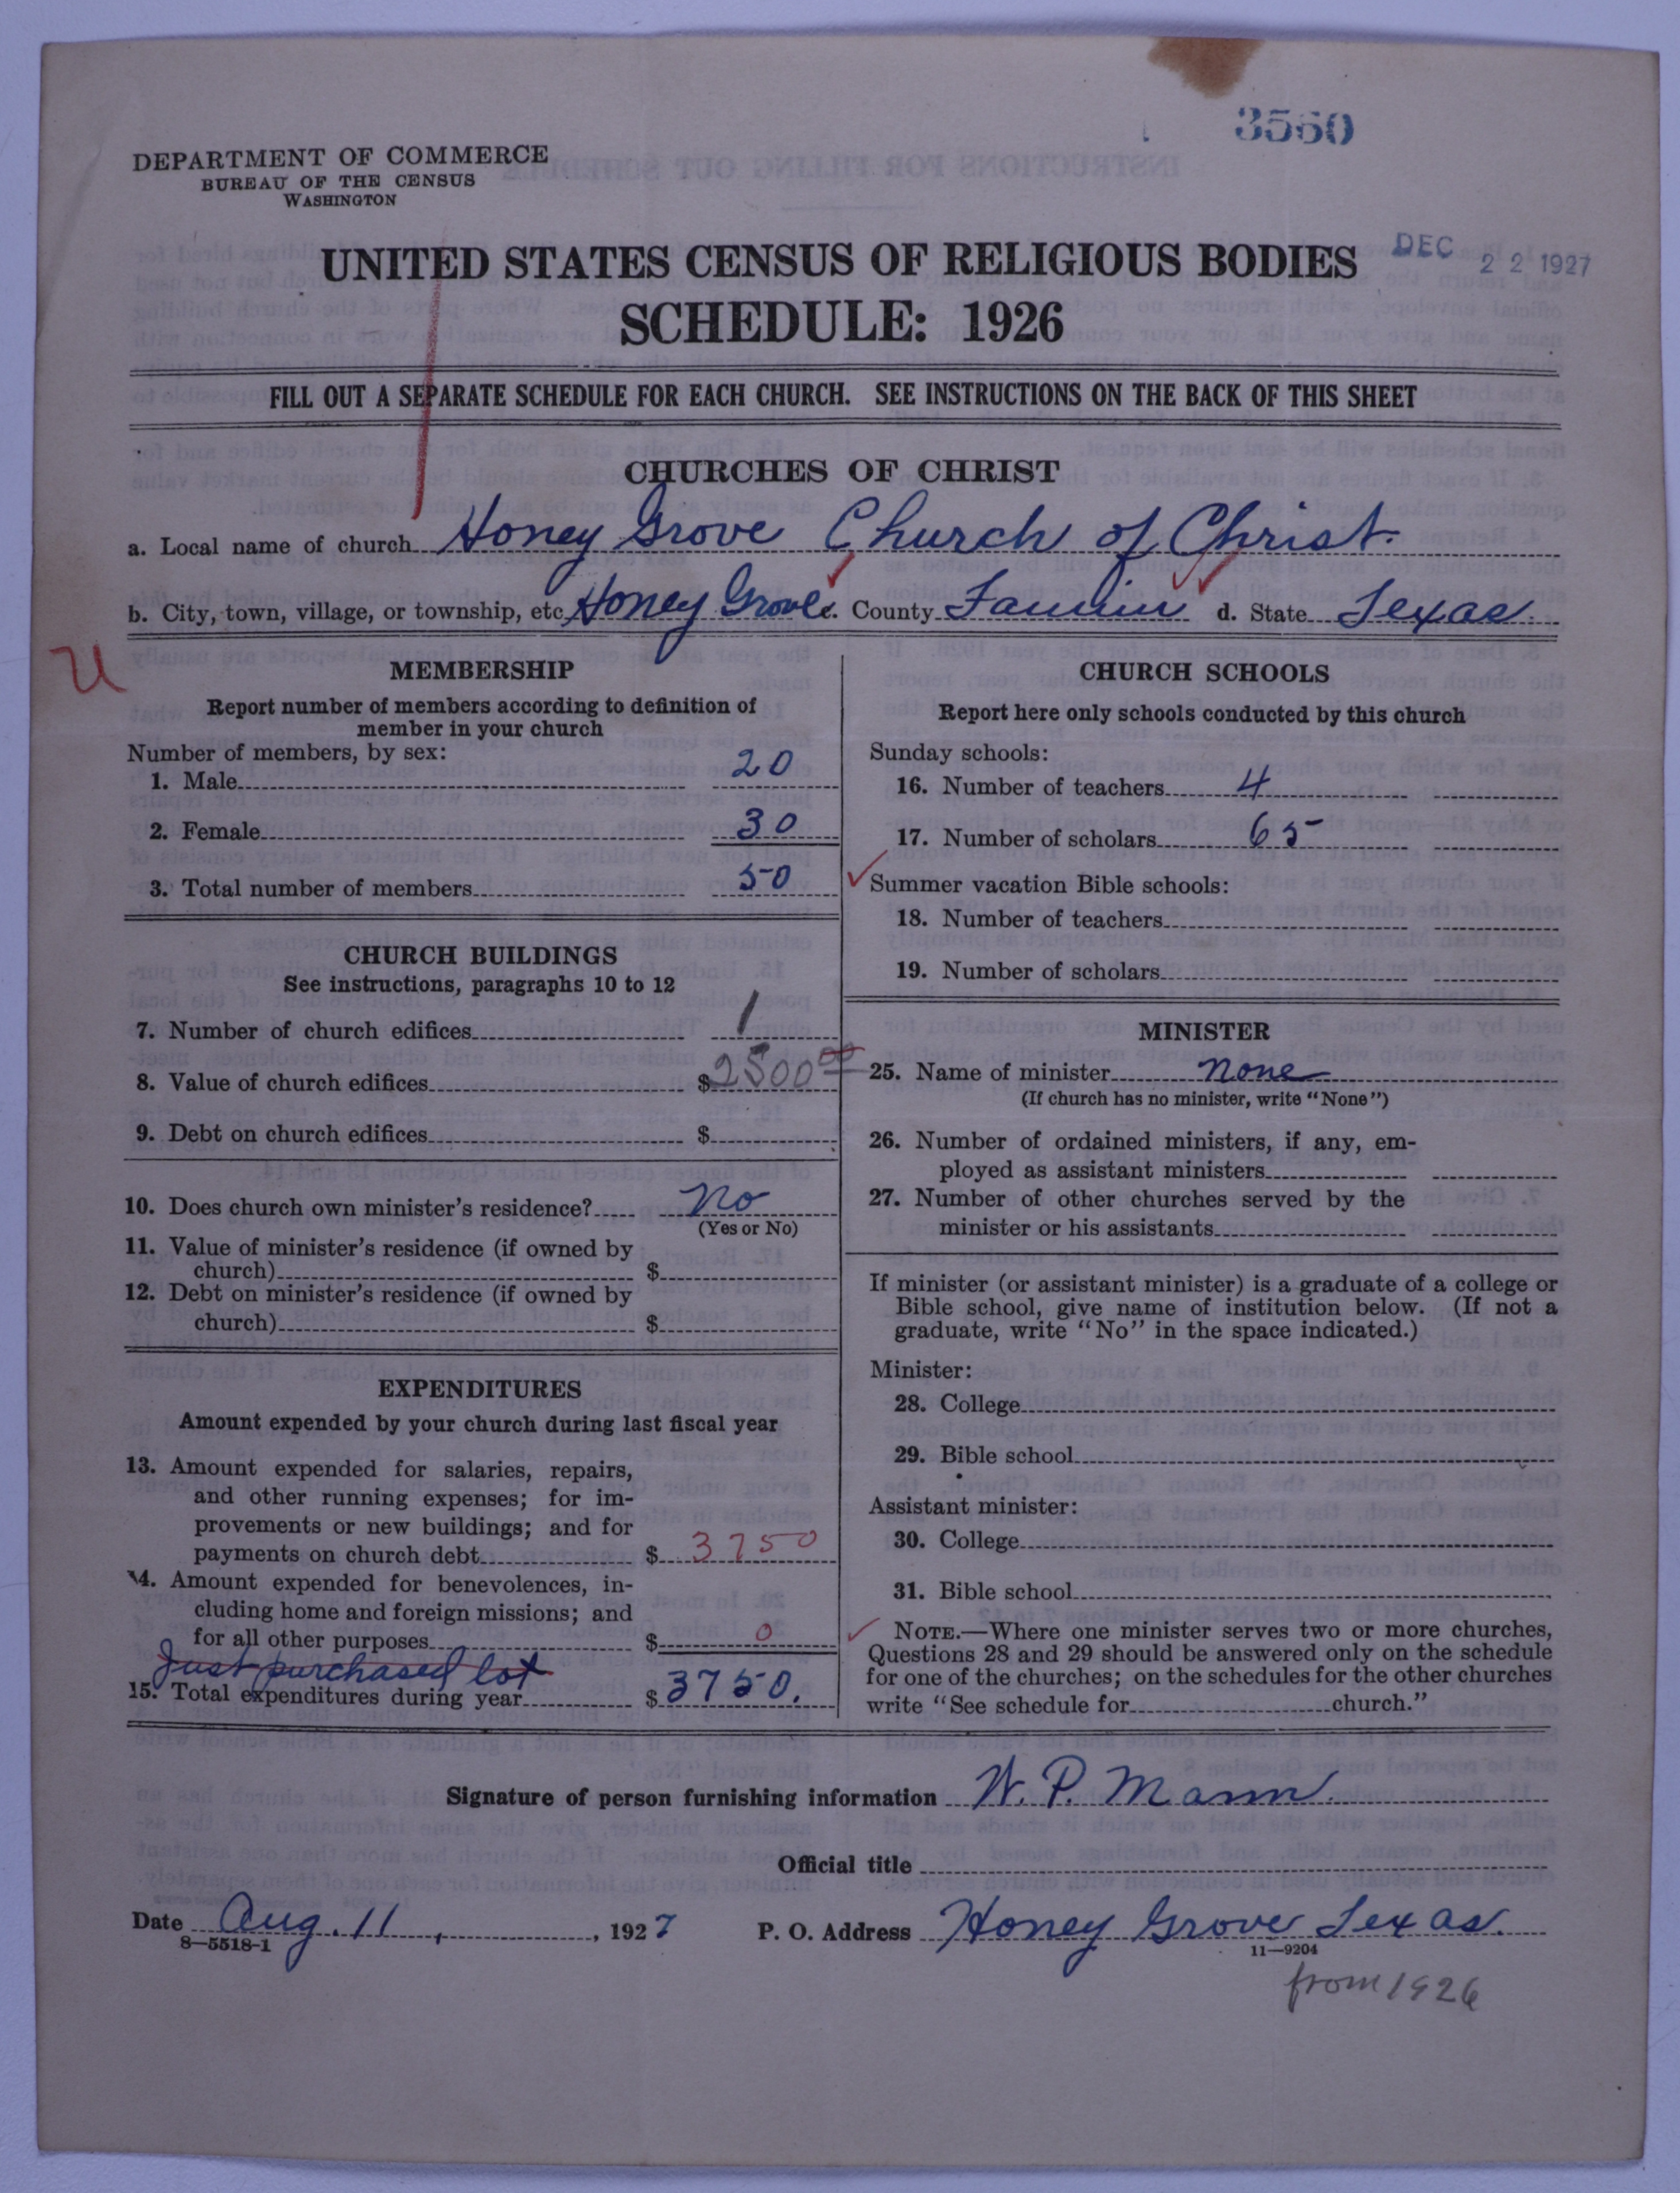 3560
DEPARTMENT OF COMMERCE
BUREAU OF THE CENSUS
WASHINGTON
UNITED STATES CENSUS OF RELIGIOUS BODIES
DEC 22 1927
SCHEDULE: 1926
FILL OUT A SEPARATE SCHEDULE FOR EACH CHURCH. SEE INSTRUCTIONS ON THE BACK OF THIS SHEET
CHURCHES OF CHRIST
a. Local name of church Honey Grove Church of Christ.
b. City, town, village, or township, etc. Honey Grove c. County Fannin d. State Texas.
U
MEMBERSHIP
Report number of members according to definition of
member in your church
Number of members, by sex:
1. Male 20
2. Female 30
3. Total number of members 50
CHURCH BUILDINGS
See instructions, paragraphs 10 to 12
7. Number of church edifices 1
8. Value of church edifices $2500 00
9. Debt on church edifices $
10. Does church own minister's residence? No
(Yes or No)
11. Value of minister's residence (if owned by
church) $
12. Debt on minister's residence (if owned by
church) $
EXPENDITURES
Amount expended by your church during last fiscal year
13. Amount expended for salaries, repairs,
and other running expenses; for im-
provements or new buildings; and for
payments on church debt $ 3750
14. Amount expended for benevolences, in-
cluding home and foreign missions; and
for all other purposes $ 0
Just purchased lot
15. Total expenditures during year $3750.
CHURCH SCHOOLS
Report here only schools conducted by this church
Sunday schools:
16. Number of teachers 4
17. Number of scholars 65
Summer vacation Bible schools:
18. Number of teachers
19. Number of scholars
MINISTER
25. Name of minister none
(If church has no minister, write "None")
26. Number of ordained ministers, if any, em-
ployed as assistant ministers
27. Number of other churches served by the
minister or his assistants
If minister (or assistant minister) is a graduate of a college or
Bible school, give name of institution below. (If not a
graduate, write "No" in the space indicated.)
Minister:
28. College
29. Bible school
Assistant minister:
30. College
31. Bible school
NOTE.—Where one minister serves two or more churches,
Questions 28 and 29 should be answered only on the schedule
for one of the churches; on the schedules for the other churches
write "See schedule for church."
Signature of person furnishing information W. P. Mann.
Official title
Date Aug. 11, 1927 P. O. Address Honey Grove Texas.
8—5518-1
11—9204
from 1926